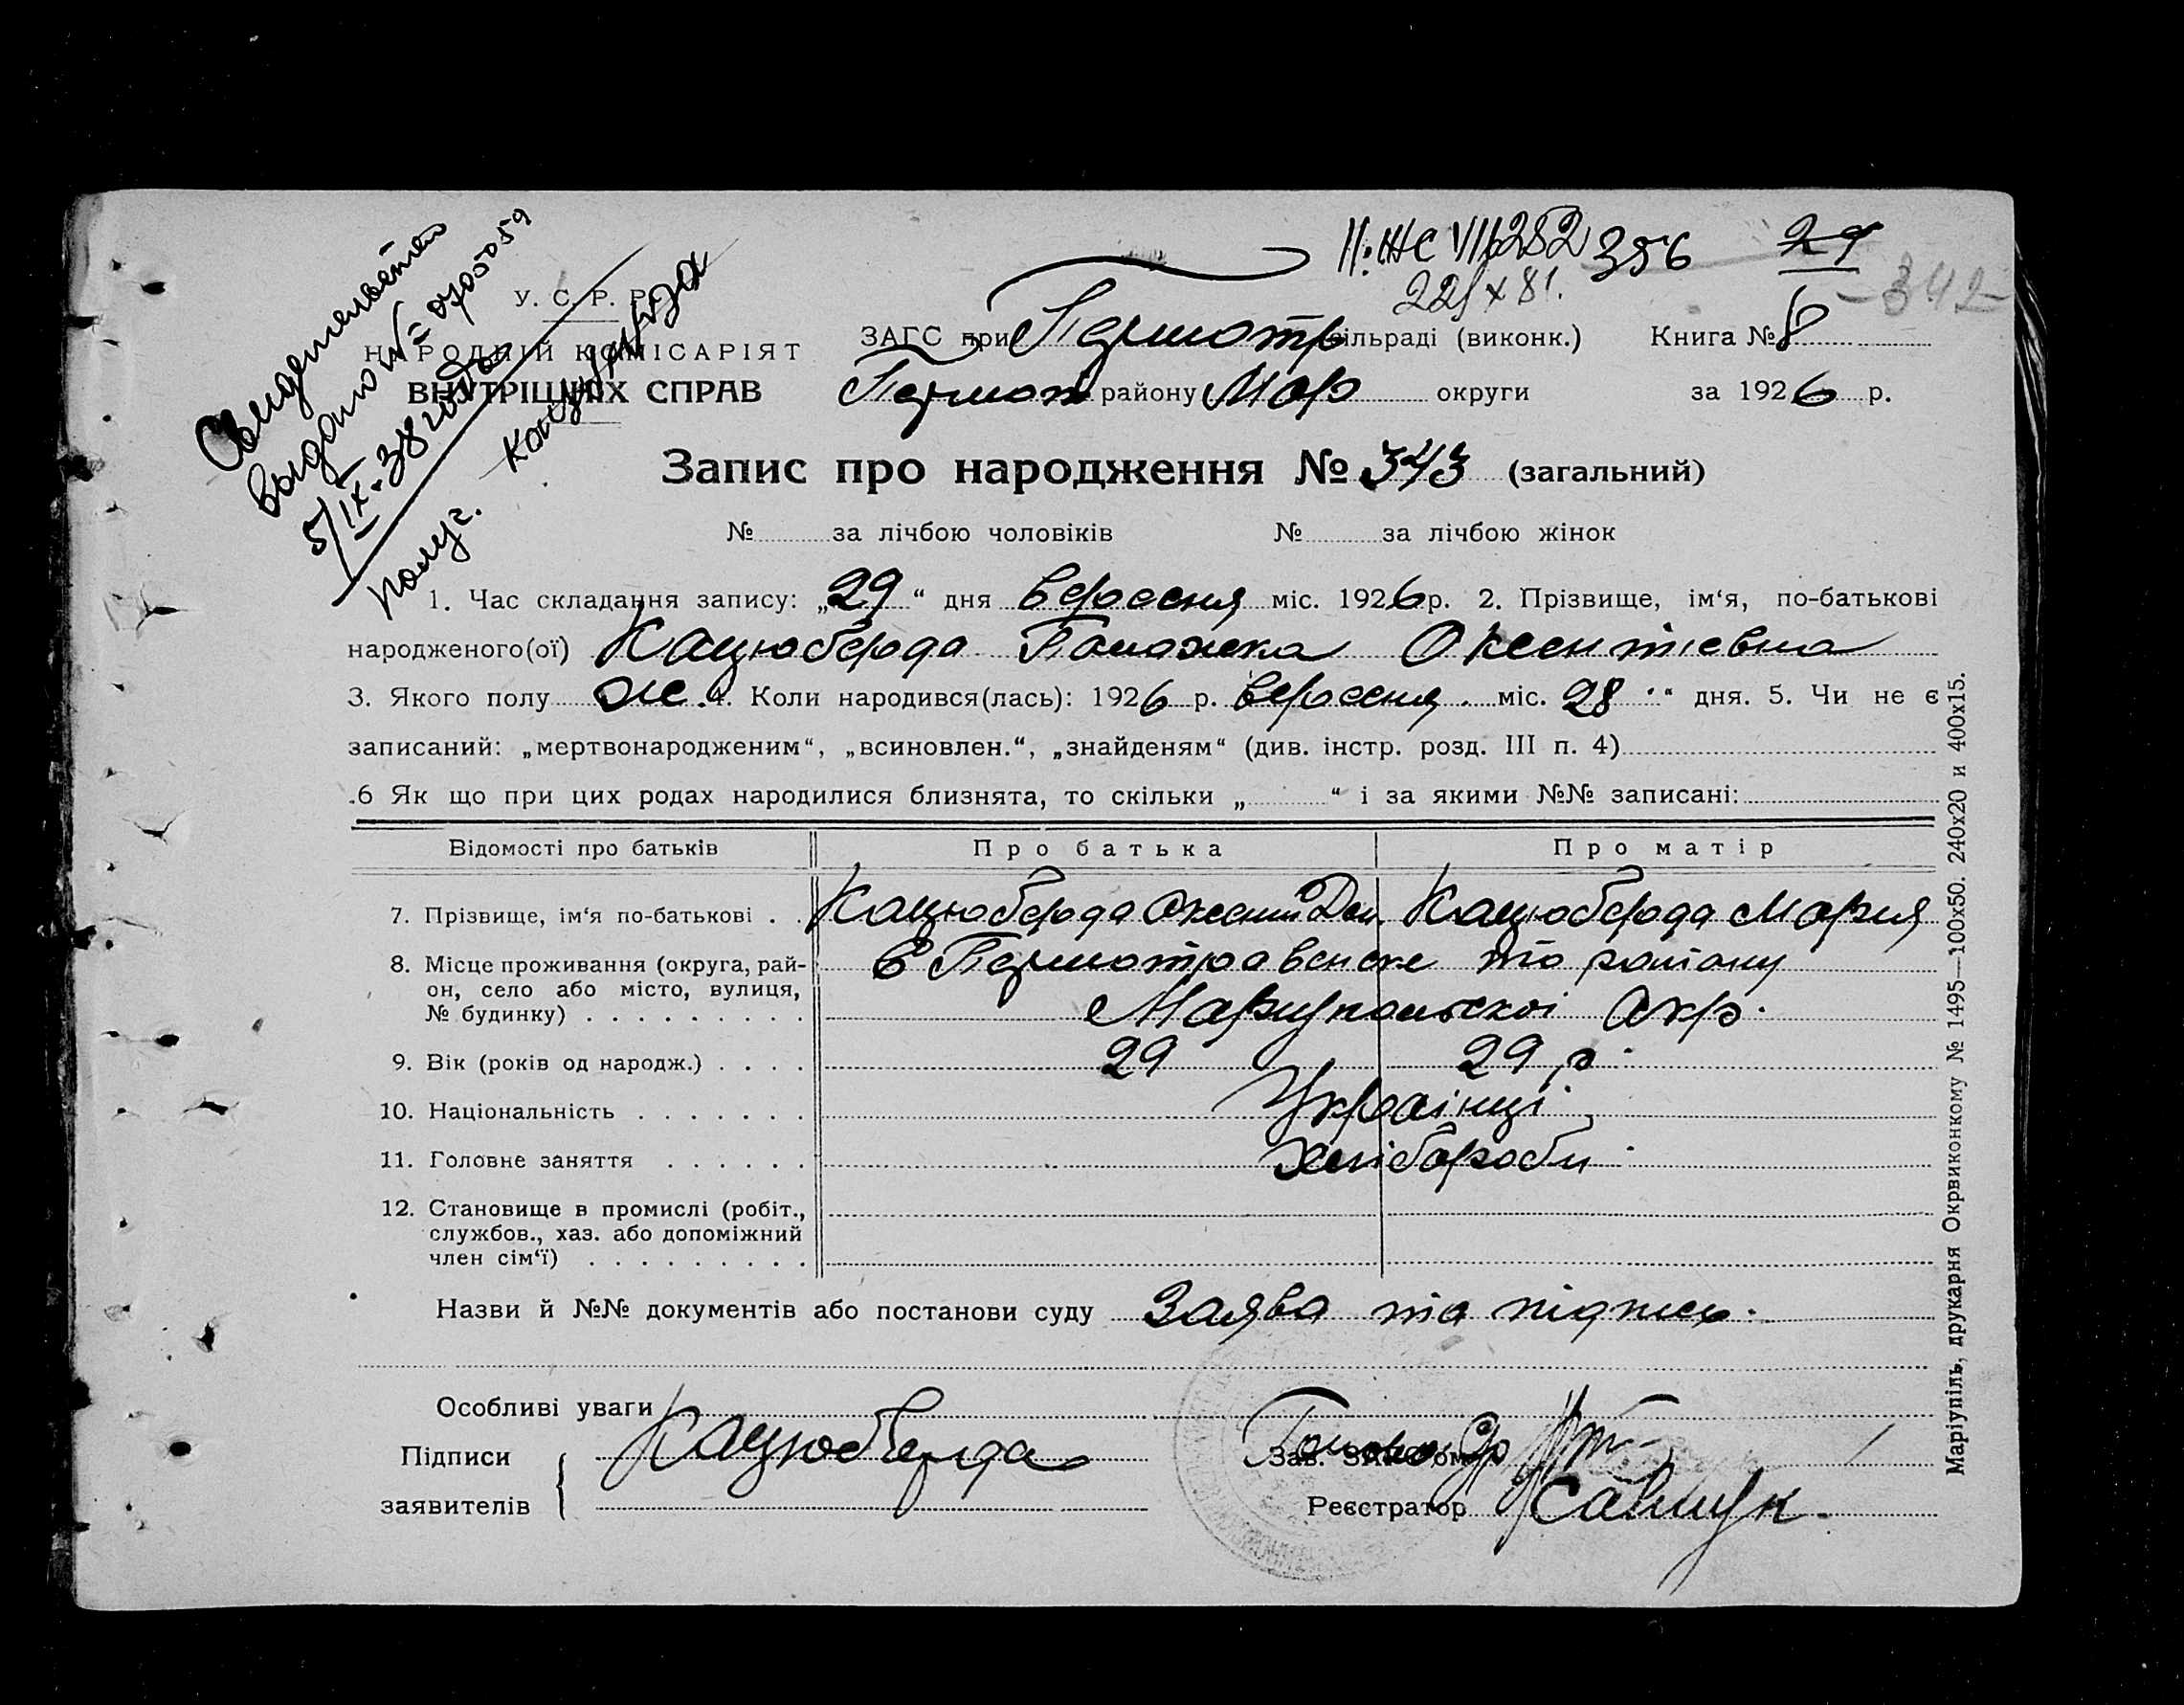 Свидетельство
выдано № 0705059
5/IX.38 года
получ.
II-ЖС VII6282 356 29
22/X 81. -342-
У. С. Р. Р.
НАРОДНІЙ КОМІСАРІЯТ
ВНУТРІШНІХ СПРАВ
ЗАГС при Першотр сільраді (виконк.) Книга № 8
Першот району Мар округи за 1926 р.
Запис про народження № 343 (загальний)
№ за лічбою чоловіків № за лічбою жінок
1. Час складання запису: „29“ дня вересня міс. 1926 р. 2. Прізвище, ім‘я, по-батькові
народженого(ої) Кацюберда Палажка Оксентіевна
3. Якого полу ж. 4. Коли народився(лась): 1926 р. вересня міс. 28 “ дня. 5. Чи не є
записаний: „мертвонародженим“, „всиновлен.“, „знайденям“ (див. інстр. розд. III п. 4)
.6 Як що при цих родах народилися близнята, то скільки „ “ і за якими №№ записані:
Відомості про батьків Про батька Про матір
7. Прізвище, ім‘я по-батькові . . Кацюберда Оксент Дем. Кацюберда Мария
8. Місце проживання (округа, рай-
он, село або місто, вулиця,
№ будинку) . . . . . . . . .
в Першотравенске то району
Мариупольскоі Окр.
9. Вік (років од народж.) . . . . 29 29 р.
10. Національність . . . . . . . Українці
11. Головне заняття . . . . . . Хлібороби
12. Становище в промислі (робіт.,
службов., хаз. або допоміжний
член сім‘ї) . . . . . . . . .
Назви й №№ документів або постанови суду Заява та підпись.
Особливі уваги
Підписи
заявителів
Кацюберда
Зав. ЗАГС‘ом
Реєстратор
Маріупіль, друкарня Окрвиконкому № 1495—100х50. 240х20 и 400х15.